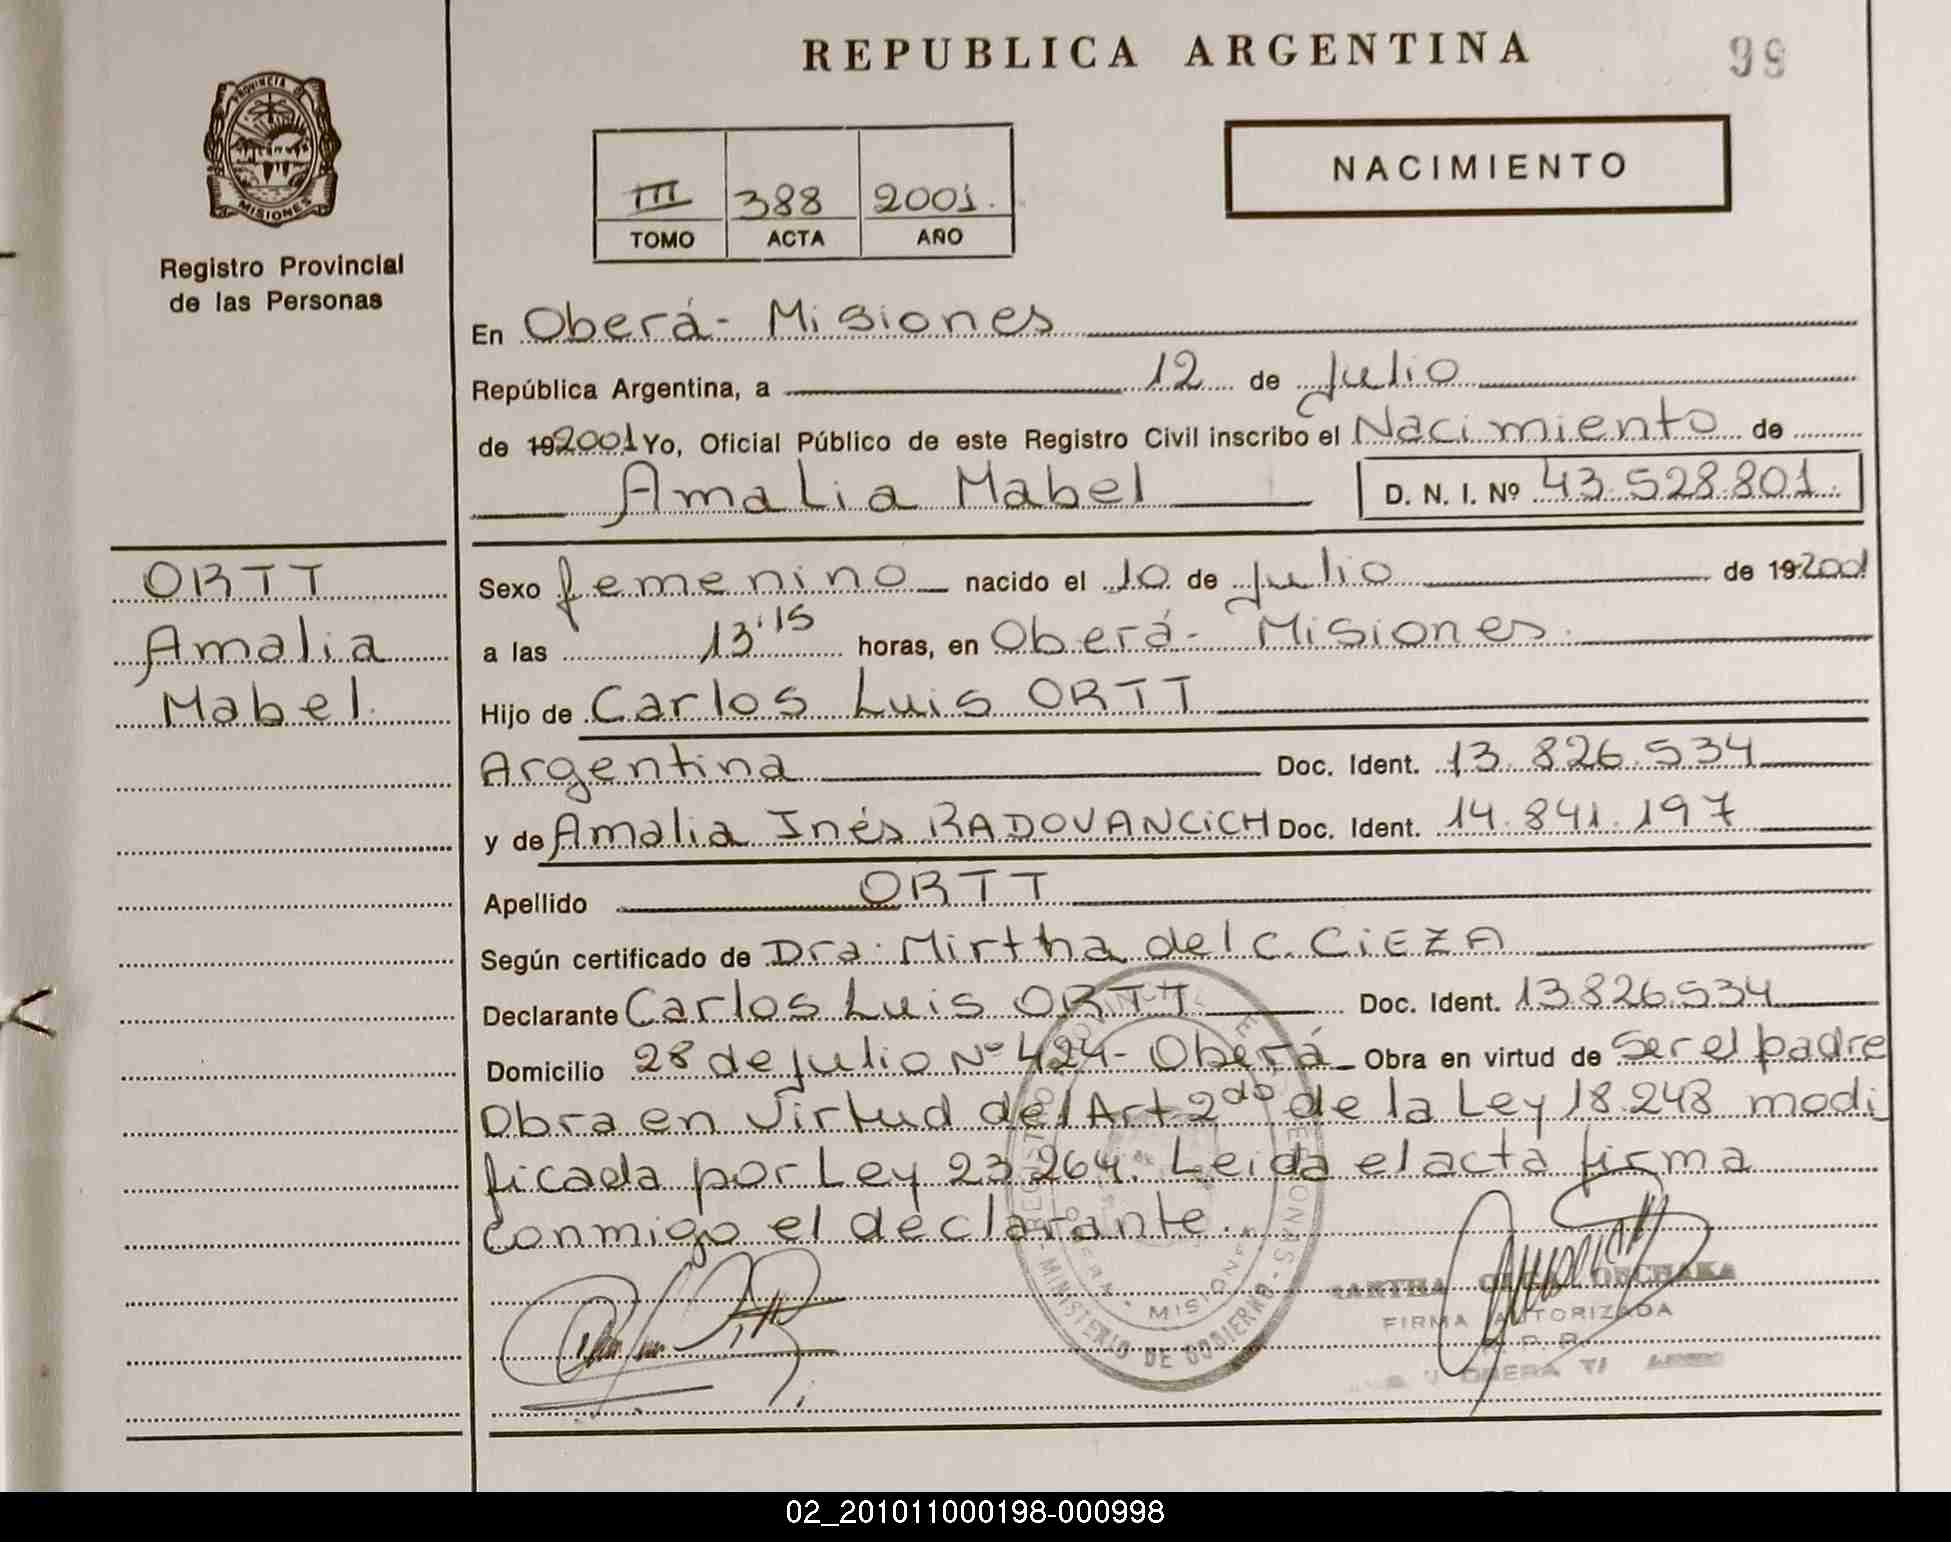 REPUBLICA ARGENTINA
99
PROVINCIA D
MISIONES
Registro Provincial
de las Personas
NACIMIENTO
III 388 2001.
TOMO ACTA AÑO
En Oberá - Misiones
República Argentina, a 12 de Julio
de 192001 Yo, Oficial Público de este Registro Civil inscribo el Nacimiento de
Amalia Mabel D. N. I. Nº 43.528.801.
ORTT
Amalia
Mabel.
Sexo femenino nacido el 10 de Julio de 192001
a las 13'15 horas, en Oberá - Misiones.
Hijo de Carlos Luis ORTT
Argentina Doc. Ident. 13.826.534
y de Amalia Inés RADOVANCICH Doc. Ident. 14.841.197
Apellido ORTT
Según certificado de Dra. Mirtha del C. CIEZA
Declarante Carlos Luis ORTT Doc. Ident. 13.826.534
Domicilio 28 de Julio Nº 424 - Oberá Obra en virtud de Ser el padre
Obra en Virtud del Art 2do de la Ley 18.248 modi
ficada por Ley 23.264. Leida el acta firma
conmigo el declarante.
MISIONES
MINISTERIO DE GOBIERNO
FIRMA AUTORIZADA
OBERA
02_201011000198-000998